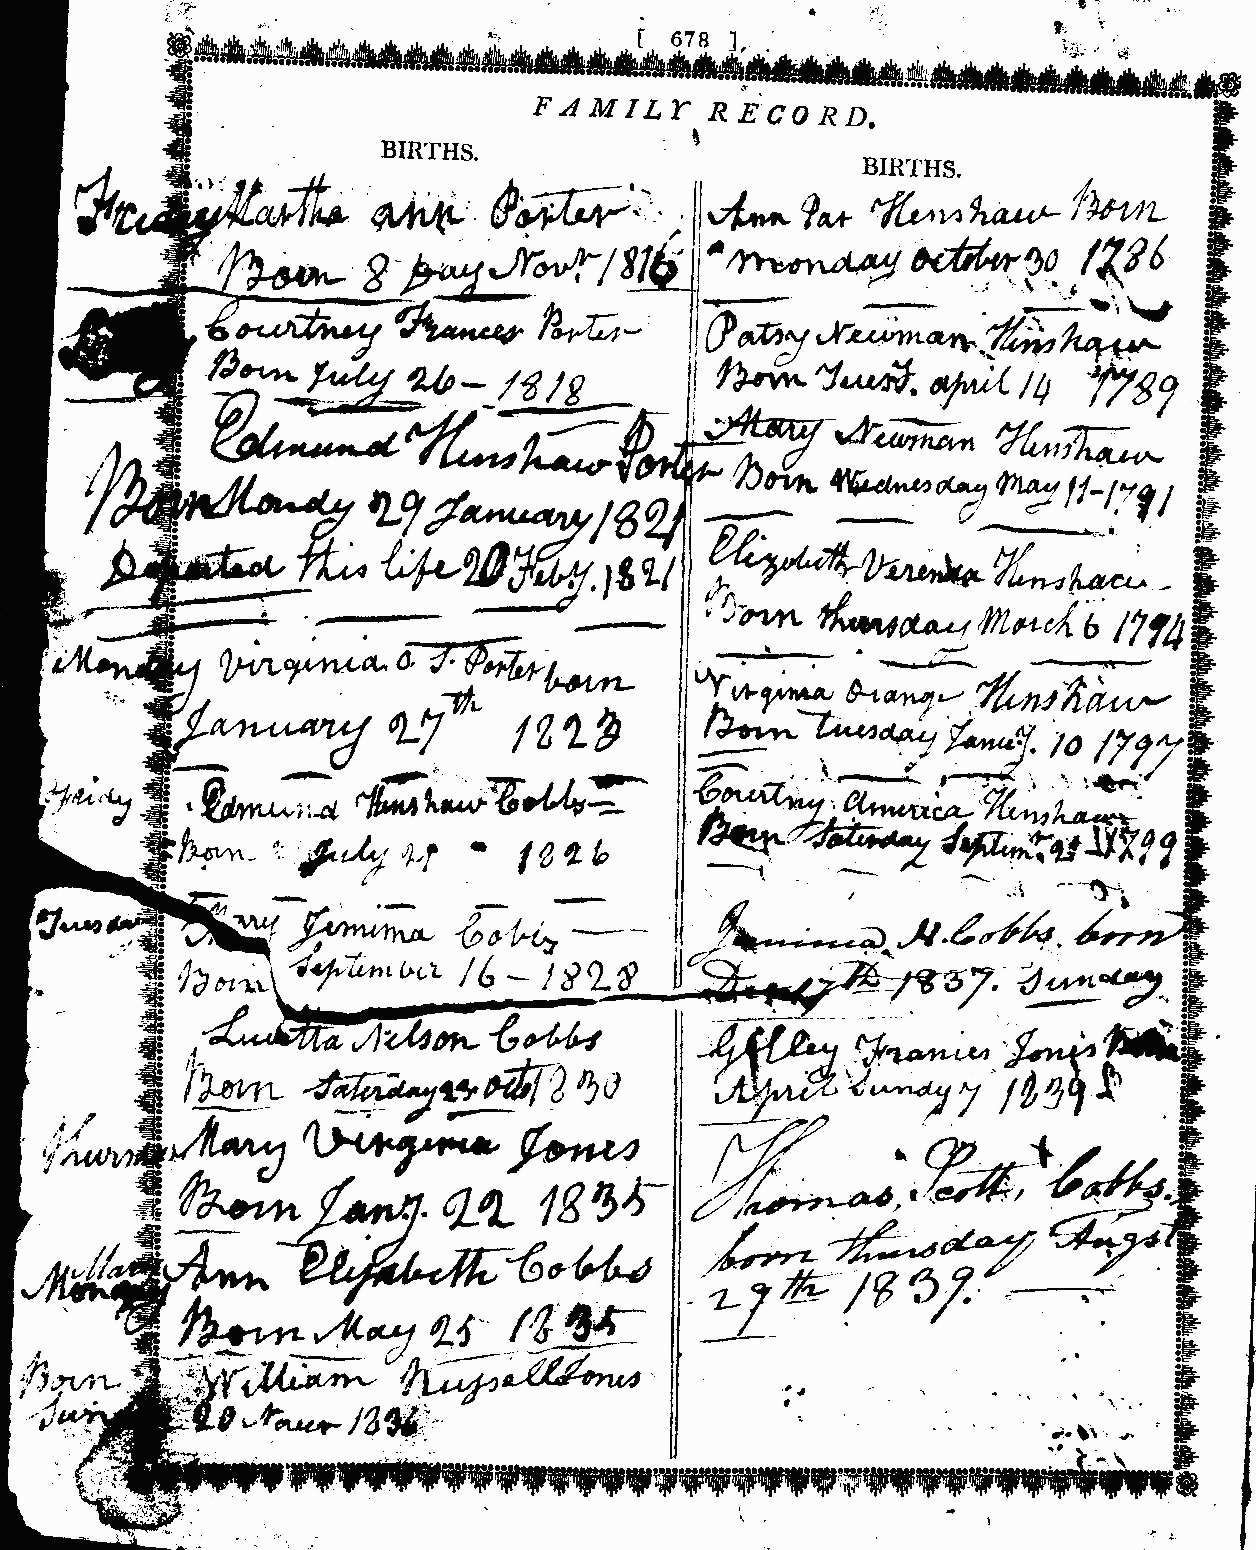 [ 678 ]
FAMILY RECORD.
BIRTHS.
Friday Martha ann Porter
Born 8 Day Novr. 1816
Courtney Frances Porter
Born July 26 – 1818
Edmund Henshaw Porter
Born Mondy 29 January 1821
Departed this life 20 Feby. 1821
Monday Virginia O S. Porter born
January 27th 1823
Fridy Edmund Henshaw Cobbs
Born July 1826
Tuesday Mary Jemima Cobbs
Born September 16 – 1828
Lucetta Nelson Cobbs
Born Saterday 23 Octo 1830
Thursday Mary Virginia Jones
Born Jany. 22 1835
Monday Ann Elizabeth Cobbs
Born May 25 1835
William Russell Jones
Born Sun 20 1836
BIRTHS.
Ann Pat Henshaw Born
monday october 30 1786
Patsy Newman Henshaw
Born Tuesd. april 14 1789
Mary Newman Henshaw
Born Wednesday May 11 – 1791
Elizabeth Verenda Henshaw
Born thursday March 6 1794
Virginia Orange Henshaw
Born tuesday Januy. 10 1797
Courtny America Henshaw
Born Saturday Septemr. 1799
Jemima N. Cobbs born
Dec 17th 1837. Sunday
Franies Jones Born
April Sundy 7 1839
Thomas, Scott, Cobbs.
born thursday, Augst
29th 1839.